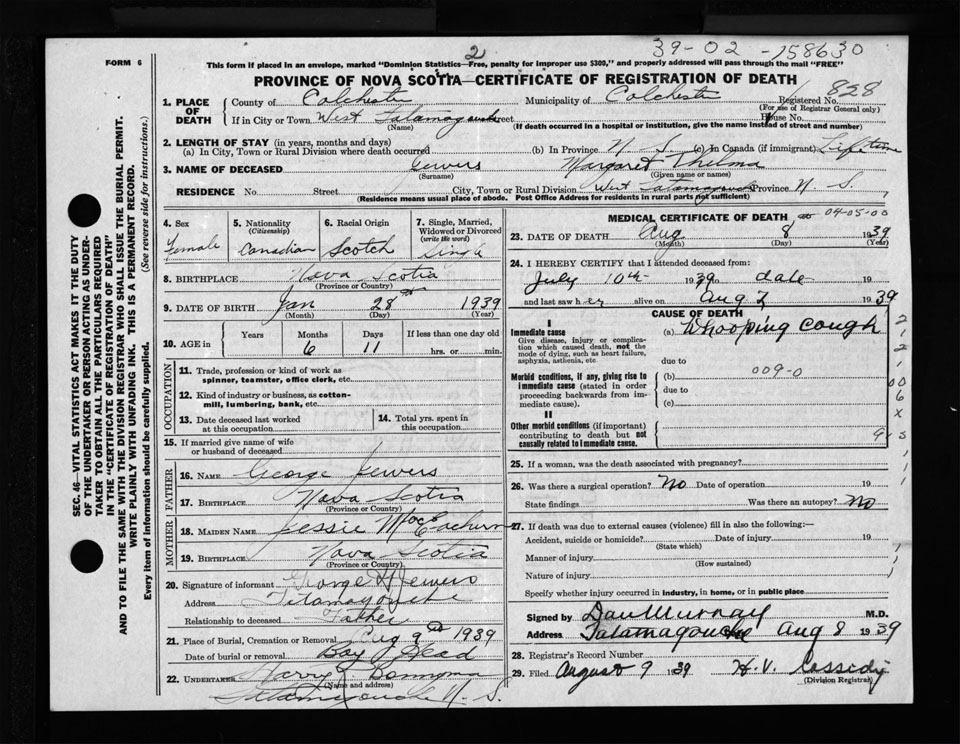 39-02-158630
2
FORM 6
This form if placed in an envelope, marked "Dominion Statistics—Free, penalty for improper use $300," and properly addressed will pass through the mail "FREE"
PROVINCE OF NOVA SCOTIA—CERTIFICATE OF REGISTRATION OF DEATH
828
1. PLACE OF DEATH County of Colchester Municipality of Colchester Registered No.
(For use of Registrar General only)
If in City or Town West Tatamagouche Street House No.
(Name) (If death occurred in a hospital or institution, give the name instead of street and number)
2. LENGTH OF STAY (in years, months and days)
(a) In City, Town or Rural Division where death occurred (b) In Province N. S. (c) In Canada (if immigrant) Lifetime
3. NAME OF DECEASED Jewers Margaret Thelma
(Surname) (Given name or names)
RESIDENCE No. Street City, Town or Rural Division West Tatamagouche Province N. S.
(Residence means usual place of abode. Post Office Address for residents in rural parts not sufficient)
4. Sex Female
5. Nationality (Citizenship) Canadian
6. Racial Origin Scotch
7. Single, Married, Widowed or Divorced (write the word) Single
8. BIRTHPLACE Nova Scotia
(Province or Country)
9. DATE OF BIRTH Jan 28th 1939
(Month) (Day) (Year)
10. AGE in Years Months 6 Days 11 If less than one day old hrs. or min.
OCCUPATION
11. Trade, profession or kind of work as spinner, teamster, office clerk, etc.
12. Kind of industry or business, as cotton-mill, lumbering, bank, etc.
13. Date deceased last worked at this occupation
14. Total yrs. spent in this occupation
15. If married give name of wife or husband of deceased
FATHER
16. NAME George Jewers
17. BIRTHPLACE Nova Scotia
(Province or Country)
MOTHER
18. MAIDEN NAME Jessie MacEachern
19. BIRTHPLACE Nova Scotia
(Province or Country)
20. Signature of informant George H Jewers
Address Tatamagouche
Relationship to deceased Father
21. Place of Burial, Cremation or Removal Aug 9th 1939
Date of burial or removal Bay Head
22. UNDERTAKER Harry Bonnyman
(Name and address)
Tatamagouche N. S.
MEDICAL CERTIFICATE OF DEATH 04-05-00
23. DATE OF DEATH Aug 8 1939
(Month) (Day) (Year)
24. I HEREBY CERTIFY that I attended deceased from:
July 10th 1939 to date 19
and last saw her alive on Aug 7 1939
CAUSE OF DEATH
I
Immediate cause
Give disease, injury or complication which caused death, not the mode of dying, such as heart failure, asphyxia, asthenia, etc.
(a) Whooping cough
due to
Morbid conditions, if any, giving rise to immediate cause (stated in order proceeding backwards from immediate cause).
(b) 009-0
due to
(c)
II
Other morbid conditions (if important) contributing to death but not causally related to immediate cause. 9
25. If a woman, was the death associated with pregnancy?
26. Was there a surgical operation? No Date of operation 19
State findings Was there an autopsy? No
27. If death was due to external causes (violence) fill in also the following:—
Accident, suicide or homicide? Date of injury 19
(State which)
Manner of injury
(How sustained)
Nature of injury
Specify whether injury occurred in industry, in home, or in public place
Signed by Dan Murray M.D.
Address Tatamagouche Aug 8 1939
28. Registrar's Record Number
29. Filed August 9 1939 H. V. Cassedy
(Division Registrar)
SEC. 46—VITAL STATISTICS ACT MAKES IT THE DUTY
OF THE UNDERTAKER OR PERSON ACTING AS UNDER-
TAKER TO OBTAIN ALL THE PARTICULARS REQUIRED
IN THE "CERTIFICATE OF REGISTRATION OF DEATH"
AND TO FILE THE SAME WITH THE DIVISION REGISTRAR WHO SHALL ISSUE THE BURIAL PERMIT.
WRITE PLAINLY WITH UNFADING INK. THIS IS A PERMANENT RECORD.
Every item of information should be carefully supplied. (See reverse side for instructions.)